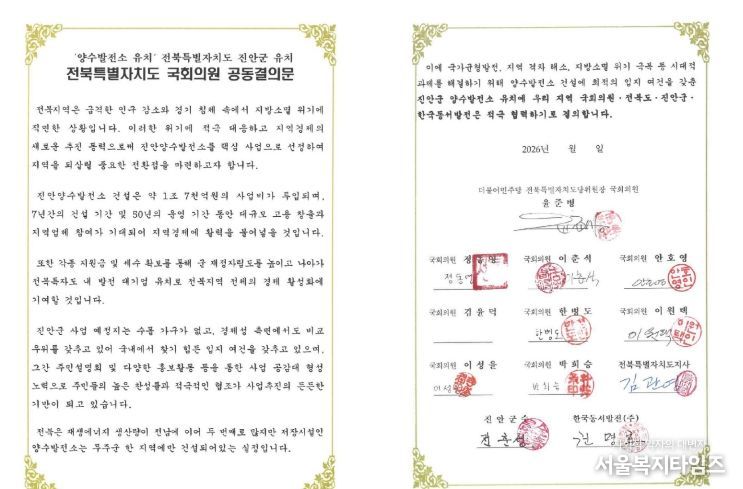 '양수발전소 유치' 전북특별자치도 진안군 유치
전북특별자치도 국회의원 공동결의문
전북지역은 급격한 인구 감소와 경기 침체 속에서 지방소멸 위기에
직면한 상황입니다. 이러한 위기에 적극 대응하고 지역경제의
새로운 추진 동력으로써 진안양수발전소를 핵심 사업으로 선정하여
지역을 되살릴 중요한 전환점을 마련하고자 합니다.
진안양수발전소 건설은 약 1조 7천억원의 사업비가 투입되며,
7년간의 건설 기간 및 50년의 운영 기간 동안 대규모 고용 창출과
지역업체 참여가 기대되어 지역경제에 활력을 불어넣을 것입니다.
또한 각종 지원금 및 세수 확보를 통해 군 재정자립도를 높이고 나아가
전북특자도 내 발전 대기업 유치로 전북지역 전체의 경제 활성화에
기여할 것입니다.
진안군 사업 예정지는 수몰 가구가 없고, 경제성 측면에서도 비교
우위를 갖추고 있어 국내에서 찾기 힘든 입지 여건을 갖추고 있으며,
그간 주민설명회 및 다양한 홍보활동 등을 통한 사업 공감대 형성
노력으로 주민들의 높은 찬성률과 적극적인 협조가 사업추진의 든든한
기반이 되고 있습니다.
전북은 재생에너지 생산량이 전남에 이어 두 번째로 많지만 저장시설인
양수발전소는 무주군 한 지역에만 건설되어있는 실정입니다.
이에 국가균형발전, 지역 격차 해소, 지방소멸 위기 극복 등 시대적
과제를 해결하기 위해 양수발전소 건설에 최적의 입지 여건을 갖춘
진안군 양수발전소 유치에 우리 지역 국회의원·전북도·진안군·
한국동서발전은 적극 협력하기로 결의합니다.
2026년 월 일
더불어민주당 전북특별자치도당위원장 국회의원
윤준병
국회의원 정동영 국회의원 이춘석 국회의원 안호영
정동영
국회의원 김윤덕 국회의원 한병도 국회의원 이원택
한병도 이원택
국회의원 이성윤 국회의원 박희승 전북특별자치도지사
이성윤 박희승 김관영
진안군수 한국동서발전(주)
전춘성 권명호
사회적 약자의 대변자
서울복지타임즈